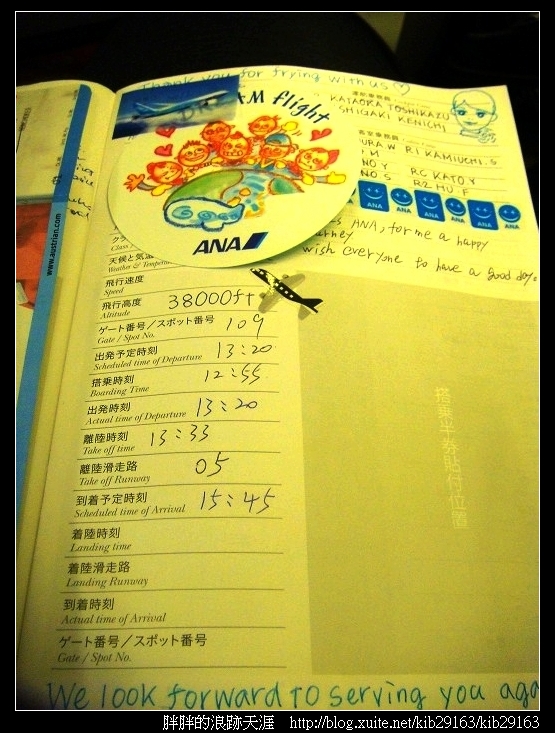 Thank you for frying with us♡
KATAOKA TOSHIKAZU
SHIGAKI KENICHI
R1 KAMIUCHI.S
RC KATO.Y
NO.S R2 HU.F
flight
ANA
ANA ANA ANA ANA ANA ANA
ANA, for me a happy
wish everyone to have a good day.
www.austrian.com
天候と気温
飛行速度
Speed
飛行高度 38000ft
Altitude
ゲート番号／スポット番号 109
Gate / Spot No.
出発予定時刻 13:20
Scheduled time of Departure
搭乗時刻 12:55
Boarding Time
出発時刻 13:20
Actual time of Departure
離陸時刻 13:33
Take off time
離陸滑走路 05
Take off Runway
到着予定時刻 15:45
Scheduled time of Arrival
着陸時刻
Landing time
着陸滑走路
Landing Runway
到着時刻
Actual time of Arrival
ゲート番号／スポット番号
Gate / Spot No.
搭乗半券貼付位置
We look forward to serving you aga
胖胖的浪跡天涯 http://blog.xuite.net/kib29163/kib29163